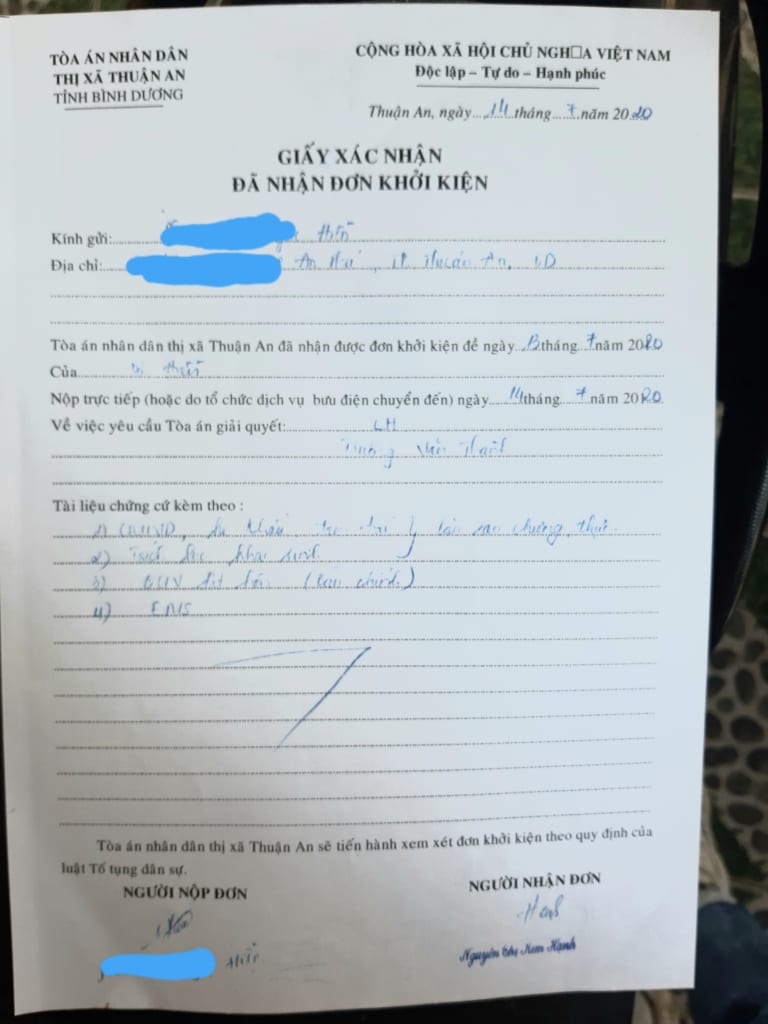 TÒA ÁN NHÂN DÂN
THỊ XÃ THUẬN AN
TỈNH BÌNH DƯƠNG
CỘNG HÒA XÃ HỘI CHỦ NGH□A VIỆT NAM
Độc lập – Tự do – Hạnh phúc
Thuận An, ngày 14 tháng 7 năm 2020
GIẤY XÁC NHẬN
ĐÃ NHẬN ĐƠN KHỞI KIỆN
Kính gửi:
Địa chỉ: Thuận An, BD
Tòa án nhân dân thị xã Thuận An đã nhận được đơn khởi kiện đề ngày 13 tháng 7 năm 2020
Của
Nộp trực tiếp (hoặc do tổ chức dịch vụ bưu điện chuyển đến) ngày 14 tháng 7 năm 2020
Về việc yêu cầu Tòa án giải quyết: LH
Tài liệu chứng cứ kèm theo :
1) CMND, bản sao chứng thực
2) khai sinh
3) (bản chính)
4)
Tòa án nhân dân thị xã Thuận An sẽ tiến hành xem xét đơn khởi kiện theo quy định của
luật Tố tụng dân sự.
NGƯỜI NỘP ĐƠN
NGƯỜI NHẬN ĐƠN
Nguyễn Thị Kim Hạnh